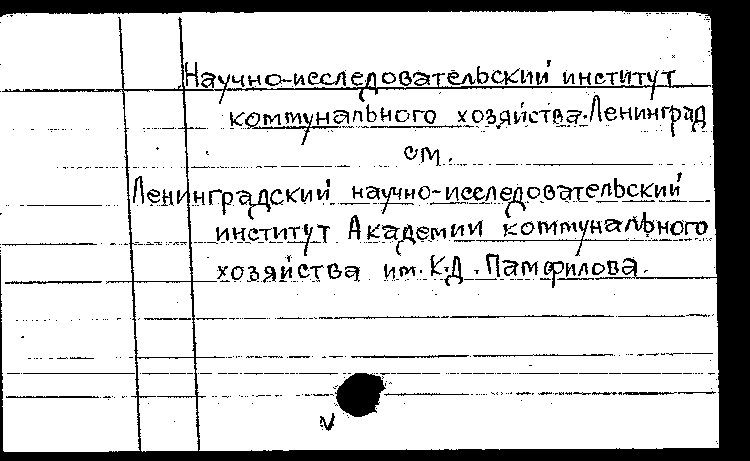 Научно-исследовательский институт
коммунального хозяйства. Ленинград
см.
Ленинградский научно-исследовательский
институт Академии коммунального
хозяйства им. К.Д. Памфилова.
v